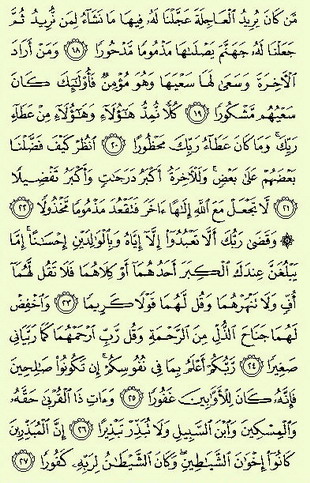 مَّن كَانَ يُرِيدُ ٱلْعَاجِلَةَ عَجَّلْنَا لَهُۥ فِيهَا مَا نَشَآءُ لِمَن نُّرِيدُ ثُمَّ
جَعَلْنَا لَهُۥ جَهَنَّمَ يَصْلَىٰهَا مَذْمُومًا مَّدْحُورًا ١٨ وَمَنْ أَرَادَ
ٱلْـَٔاخِرَةَ وَسَعَىٰ لَهَا سَعْيَهَا وَهُوَ مُؤْمِنٌ فَأُو۟لَـٰٓئِكَ كَانَ
سَعْيُهُم مَّشْكُورًا ١٩ كُلًّا نُّمِدُّ هَـٰٓؤُلَآءِ وَهَـٰٓؤُلَآءِ مِنْ عَطَآءِ
رَبِّكَ ۚ وَمَا كَانَ عَطَآءُ رَبِّكَ مَحْظُورًا ٢٠ ٱنظُرْ كَيْفَ فَضَّلْنَا
بَعْضَهُمْ عَلَىٰ بَعْضٍ ۚ وَلَلْـَٔاخِرَةُ أَكْبَرُ دَرَجَـٰتٍ وَأَكْبَرُ تَفْضِيلًا
٢١ لَّا تَجْعَلْ مَعَ ٱللَّهِ إِلَـٰهًا ءَاخَرَ فَتَقْعُدَ مَذْمُومًا مَّخْذُولًا ٢٢
۞ وَقَضَىٰ رَبُّكَ أَلَّا تَعْبُدُوٓا۟ إِلَّآ إِيَّاهُ وَبِٱلْوَٰلِدَيْنِ إِحْسَـٰنًا ۚ إِمَّا
يَبْلُغَنَّ عِندَكَ ٱلْكِبَرَ أَحَدُهُمَآ أَوْ كِلَاهُمَا فَلَا تَقُل لَّهُمَآ
أُفٍّ وَلَا تَنْهَرْهُمَا وَقُل لَّهُمَا قَوْلًا كَرِيمًا ٢٣ وَٱخْفِضْ
لَهُمَا جَنَاحَ ٱلذُّلِّ مِنَ ٱلرَّحْمَةِ وَقُل رَّبِّ ٱرْحَمْهُمَا كَمَا رَبَّيَانِى
صَغِيرًا ٢٤ رَّبُّكُمْ أَعْلَمُ بِمَا فِى نُفُوسِكُمْ ۚ إِن تَكُونُوا۟ صَـٰلِحِينَ
فَإِنَّهُۥ كَانَ لِلْأَوَّٰبِينَ غَفُورًا ٢٥ وَءَاتِ ذَا ٱلْقُرْبَىٰ حَقَّهُۥ
وَٱلْمِسْكِينَ وَٱبْنَ ٱلسَّبِيلِ وَلَا تُبَذِّرْ تَبْذِيرًا ٢٦ إِنَّ ٱلْمُبَذِّرِينَ
كَانُوٓا۟ إِخْوَٰنَ ٱلشَّيَـٰطِينِ ۖ وَكَانَ ٱلشَّيْطَـٰنُ لِرَبِّهِۦ كَفُورًا ٢٧